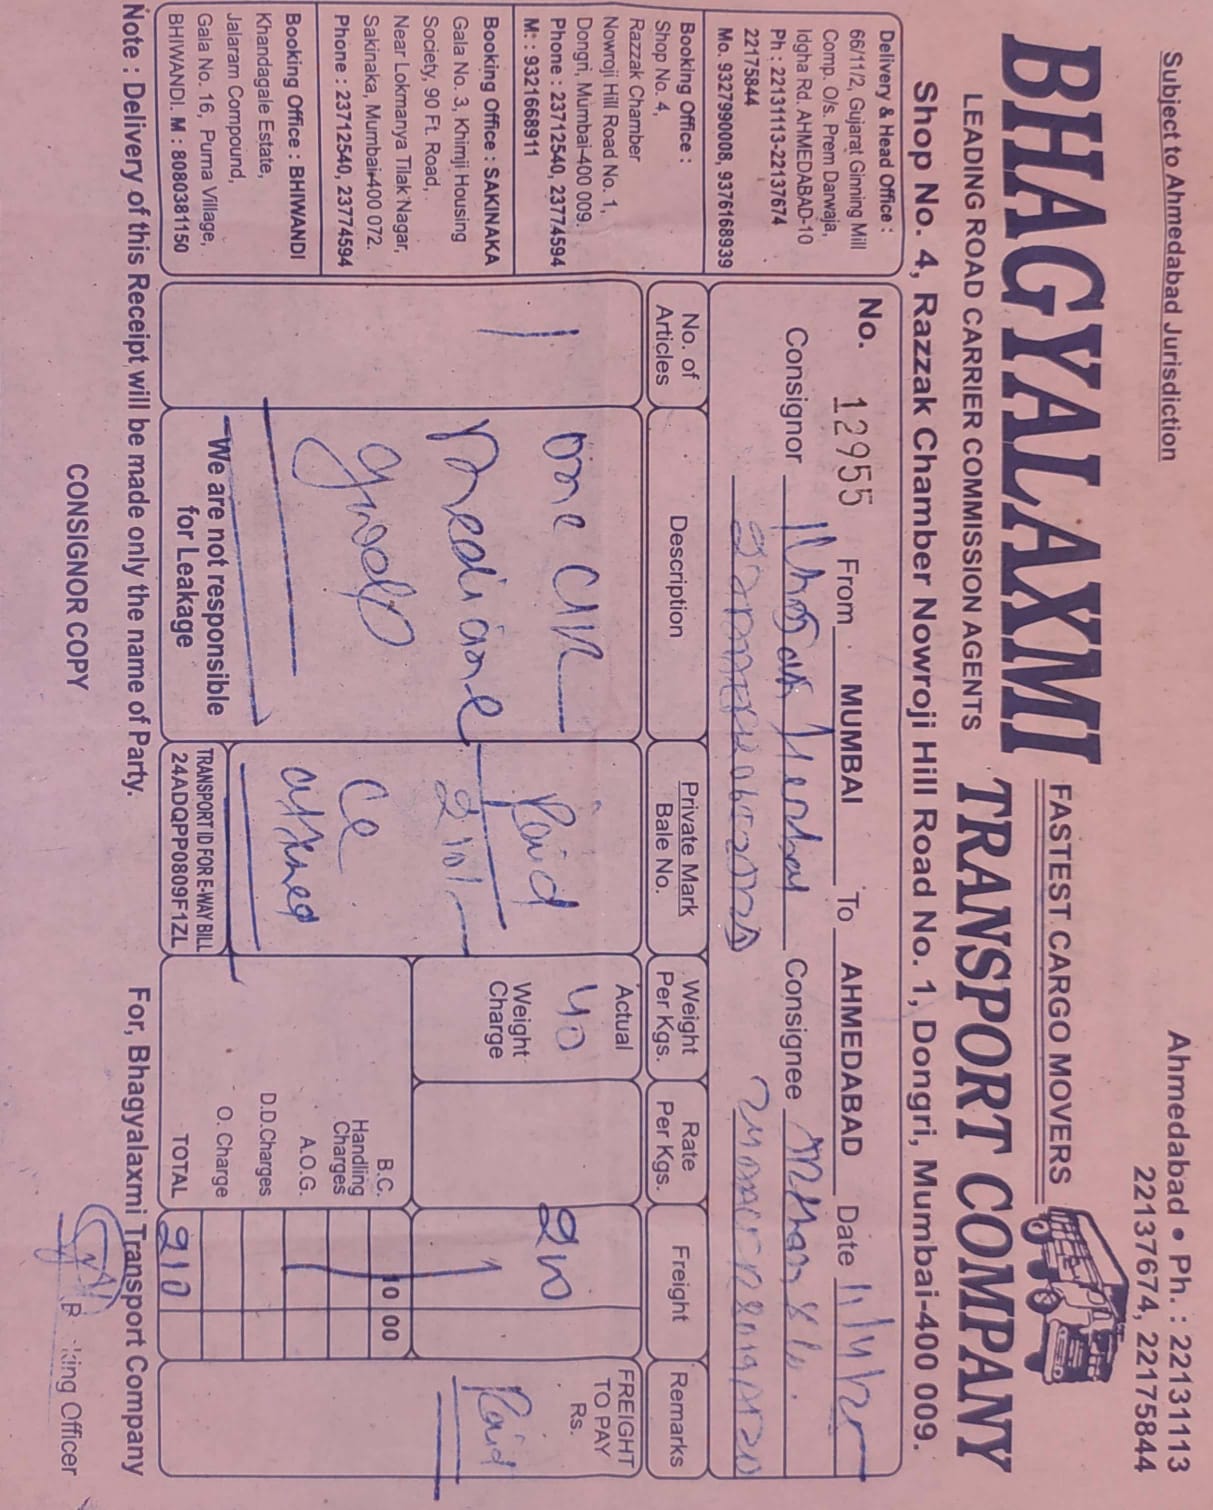 Subject to Ahmedabad Jurisdiction
Ahmedabad • Ph. : 22131113
22137674, 22175844
BHAGYALAXMI
FASTEST CARGO MOVERS
TRANSPORT COMPANY
LEADING ROAD CARRIER COMMISSION AGENTS
Shop No. 4, Razzak Chamber Nowroji Hill Road No. 1, Dongri, Mumbai-400 009.
Delivery & Head Office :
66/11/2, Gujarat Ginning Mill
Comp. O/s. Prem Darwaja,
Idgha Rd. AHMEDABAD-10
Ph : 22131113-22137674
22175844
Mo. 9327990008, 9376168939
Booking Office :
Shop No. 4,
Razzak Chamber
Nowroji Hill Road No. 1,
Dongri, Mumbai-400 009.
Phone : 23712540, 23774594
M. : 9321668911
Booking Office : SAKINAKA
Gala No. 3, Khimji Housing
Society, 90 Ft. Road,
Near Lokmanya Tilak Nagar,
Sakinaka, Mumbai-400 072.
Phone : 23712540, 23774594
Booking Office : BHIWANDI
Khandagale Estate,
Jalaram Compound,
Gala No. 16, Purna Village,
BHIWANDI. M : 8080381150
No. 12955 From MUMBAI To AHMEDABAD Date
Consignor Consignee
No. of Articles
Description
Private Mark Bale No.
Weight Per Kgs.
Rate Per Kgs.
Freight
Remarks
1
one
Medicine
Paid
210/-
Actual
40
Weight Charge
210
FREIGHT TO PAY Rs.
Paid
B.C. 10 00
Handling Charges
A.O.G.
D.D.Charges
O. Charge
TOTAL 210
We are not responsible
for Leakage
TRANSPORT ID FOR E-WAY BILL
24ADQPP0809F1ZL
Note : Delivery of this Receipt will be made only the name of Party.
For, Bhagyalaxmi Transport Company
CONSIGNOR COPY
king Officer